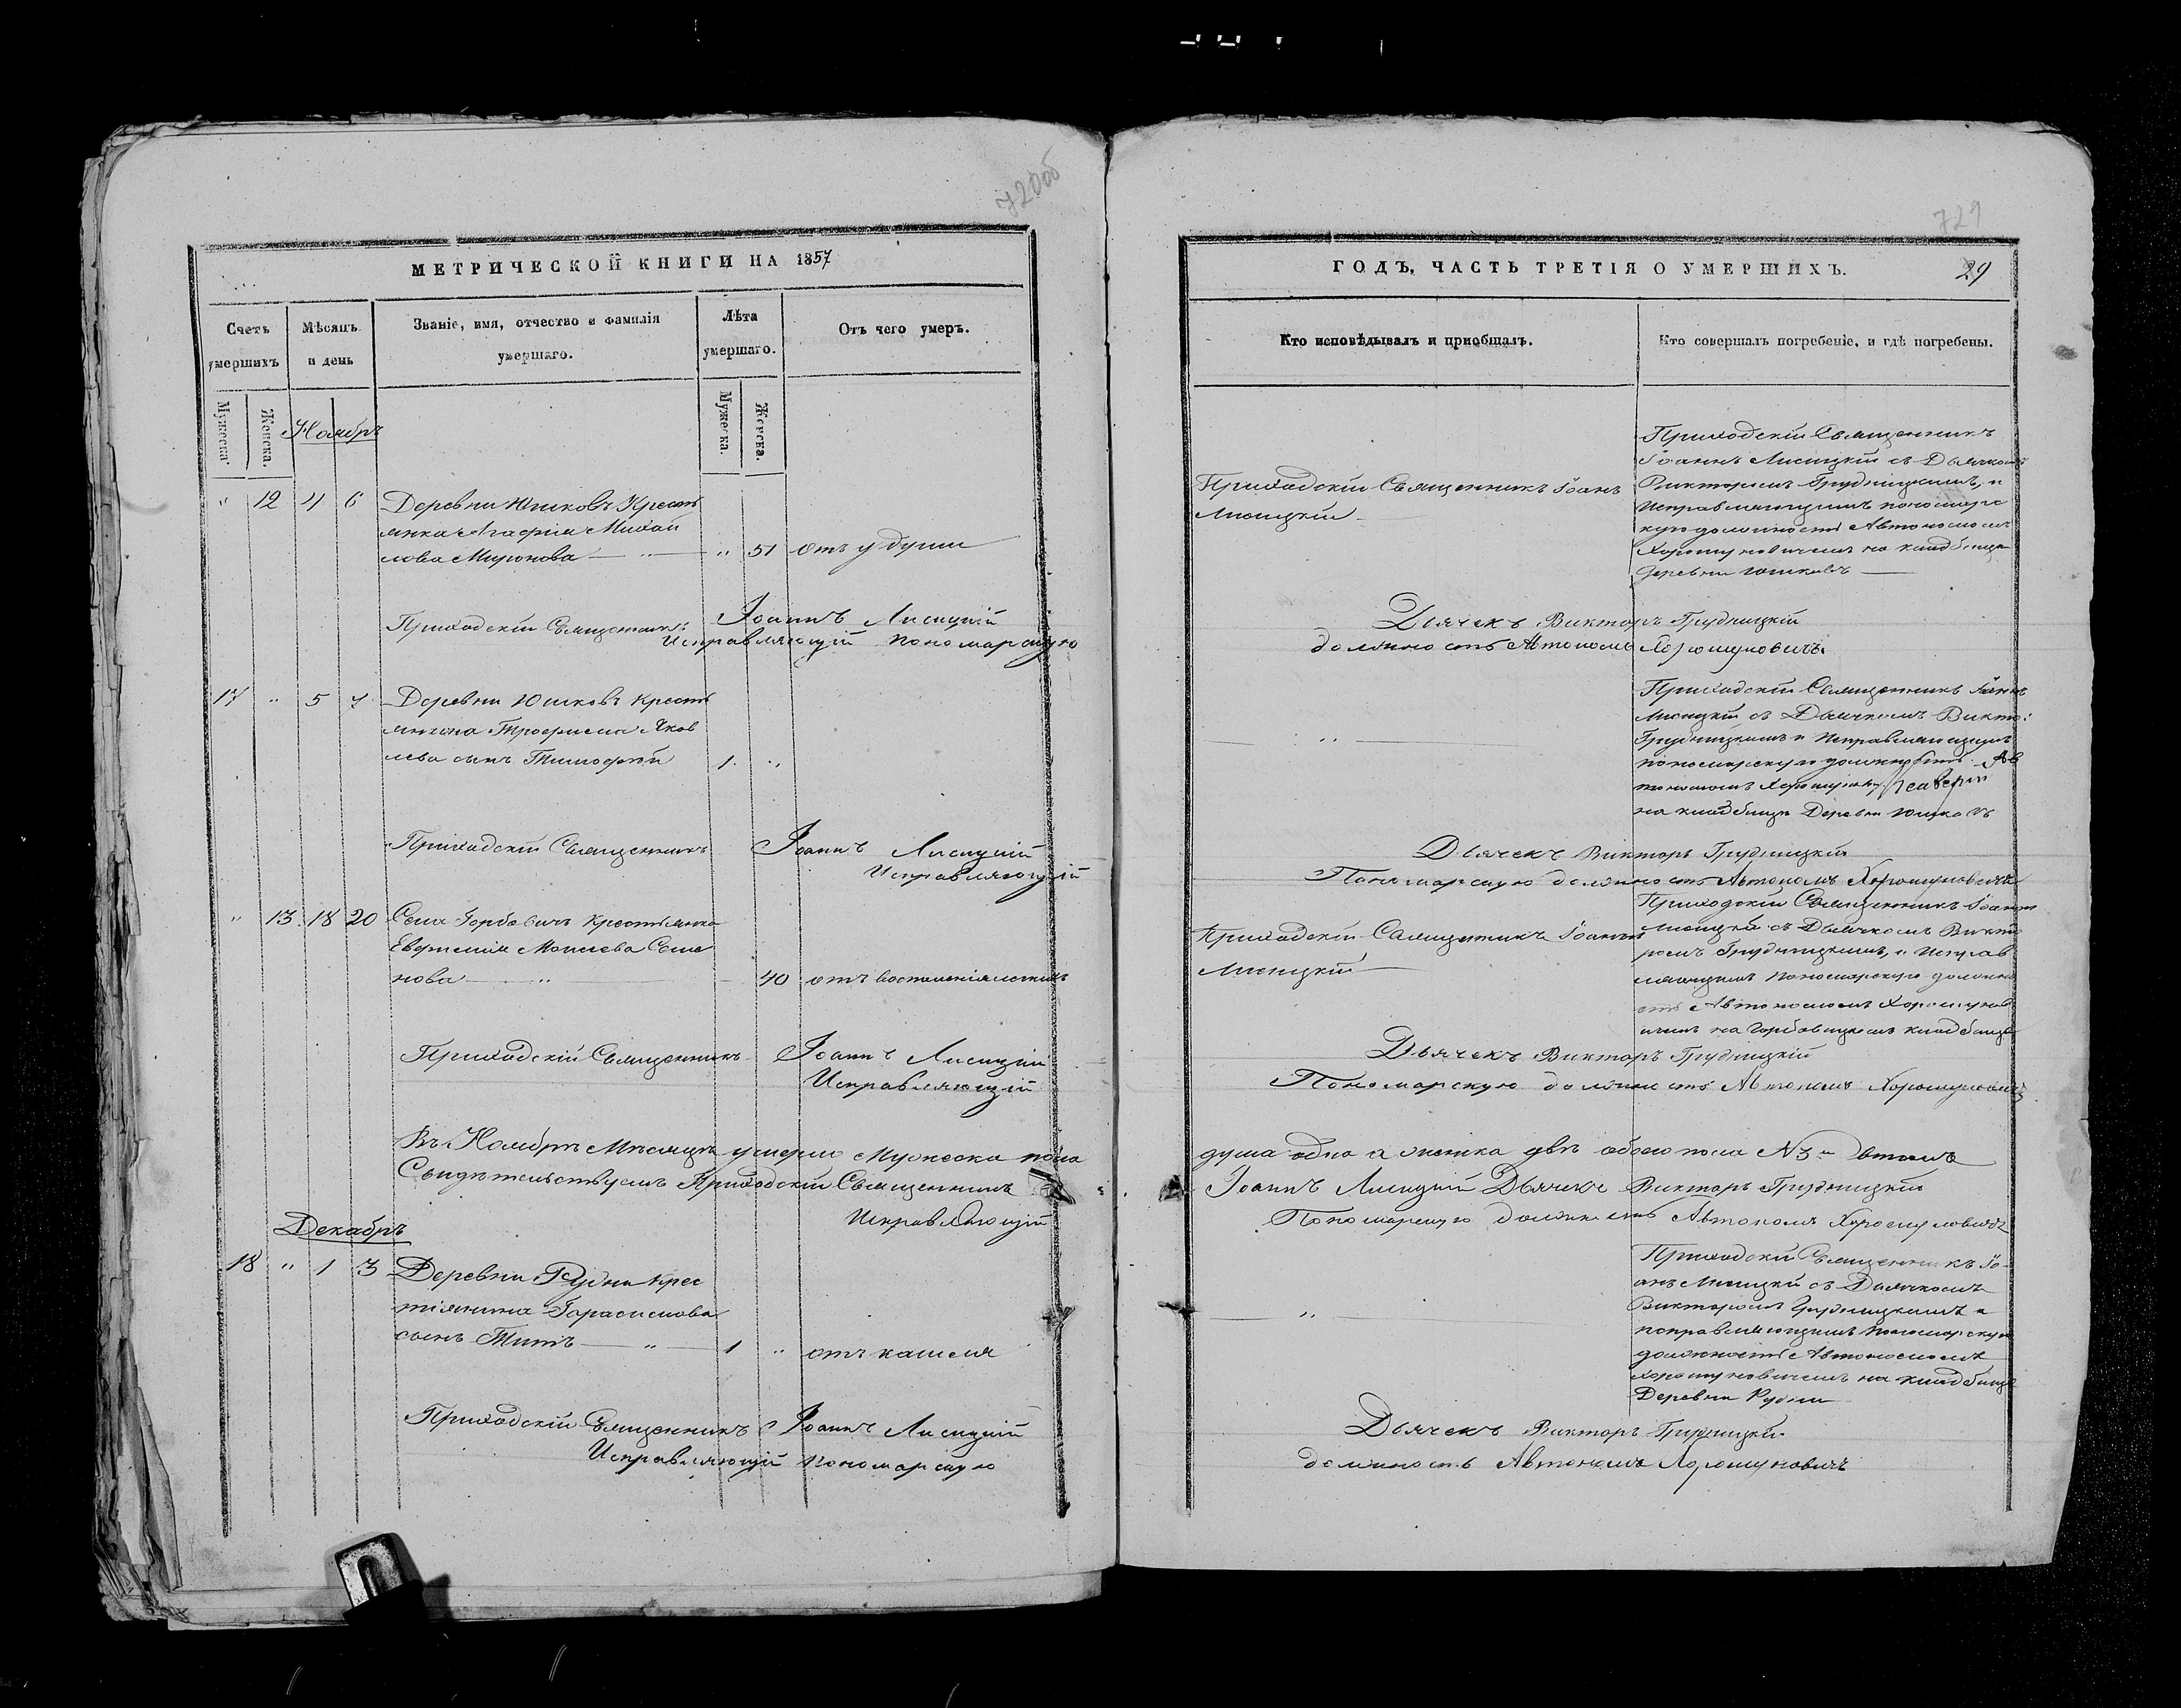 720об
МЕТРИЧЕСКОЙ КНИГИ НА 1857
Счетъ умершихъ
Мѣсяцъ и день
Званіе, имя, отчество и фамилія умершаго.
Лѣта умершаго.
Отъ чего умеръ.
Мужеска.
Женска.
Мужеска.
Женска.
Ноябрь
" 12 4 6 Деревни Юшковъ Кресть
янка Агафія Михай
лова Миронова — " — " 51 отъ удуши
Приходскій Священникъ Іоаннъ Лисицкій
Исправляющій пономарскую
17 " 5 7 Деревни Юшковъ кресть
янина Трофима Яков
лева сынъ Тимофей 1 "
Приходскій Священникъ Іоаннъ Лисицкій
Исправляющій
" 13 18 20 Села Горбовичъ крестьянка
Евгенія Моисеева Семе
нова — " — 40 отъ воспаленія легкихъ
Приходскій Священникъ Іоаннъ Лисицкій
Исправляющій
Въ Ноябрѣ Мѣсяцѣ умерло Мужеска пола
Свидѣтельствуемъ Приходскій Священникъ
Исправляющій
Декабрь
18 " 1 3 Деревни Рудни Крес
тіянина Гарасимова
сынъ Титъ — " — 1 " отъ кашеля
Приходскій Священникъ Іоаннъ Лисицкій
Исправляющій пономарскую
729
ГОДЪ, ЧАСТЬ ТРЕТІЯ О УМЕРШИХЪ. 29
Кто исповѣдывалъ и пріобщалъ.
Кто совершалъ погребеніе, и гдѣ погребены.
Приходскій Священникъ Іоанъ
Лисицкій —
Приходскій Священникъ
Іоаннъ Лисицкій съ Дьячкомъ
Викторомъ Грудницкимъ, и
Исправляющимъ пономарс
кую должность Автономомъ
Хорошуновичемъ на кладбищѣ
деревни Юшковъ —
Дьячекъ Викторъ Грудницкій
должность Автономъ Хорошуновичъ.
— " —
Приходскій Священникъ Іоаннъ
Лисицкій съ Дьячкомъ Викто:
Грудницкимъ и Исправляющимъ
пономарскую должность Ав
тономомъ
на кладбищѣ Деревни Юшковъ
Дьячекъ Викторъ Грудницкій
Пономарскую должность Автономъ Хорошуновичъ
Приходскій Священникъ Іоаннъ
Лисицкій —
Приходскій Священникъ Іоаннъ
Лисицкій съ Дьячкомъ Викто
ромъ Грудницкимъ, и Исправ
ляющимъ пономарскую должно
сть Автономомъ Хорошунов
ичемъ на Горбовицкомъ кладбищѣ
Дьячекъ Викторъ Грудницкій
Пономарскую должность Автономъ Хорошуновичъ
душа одна а женска двѣ обоего пола №3й въ томъ
Іоаннъ Лисицкій Дьячекъ Викторъ Грудницкій
Пономарскую должность Автономъ Хорошуновичъ
— " —
Приходскій Священникъ Іо
анъ Лисицкій съ Дьячкомъ
Викторомъ Грудницкимъ и
исправляющимъ пономарскую
должность Автономомъ
Хорошуновичемъ на кладбищѣ
Деревни Рудни
Дьячекъ Викторъ Грудницкій
должность Автономъ Хорошуновичъ